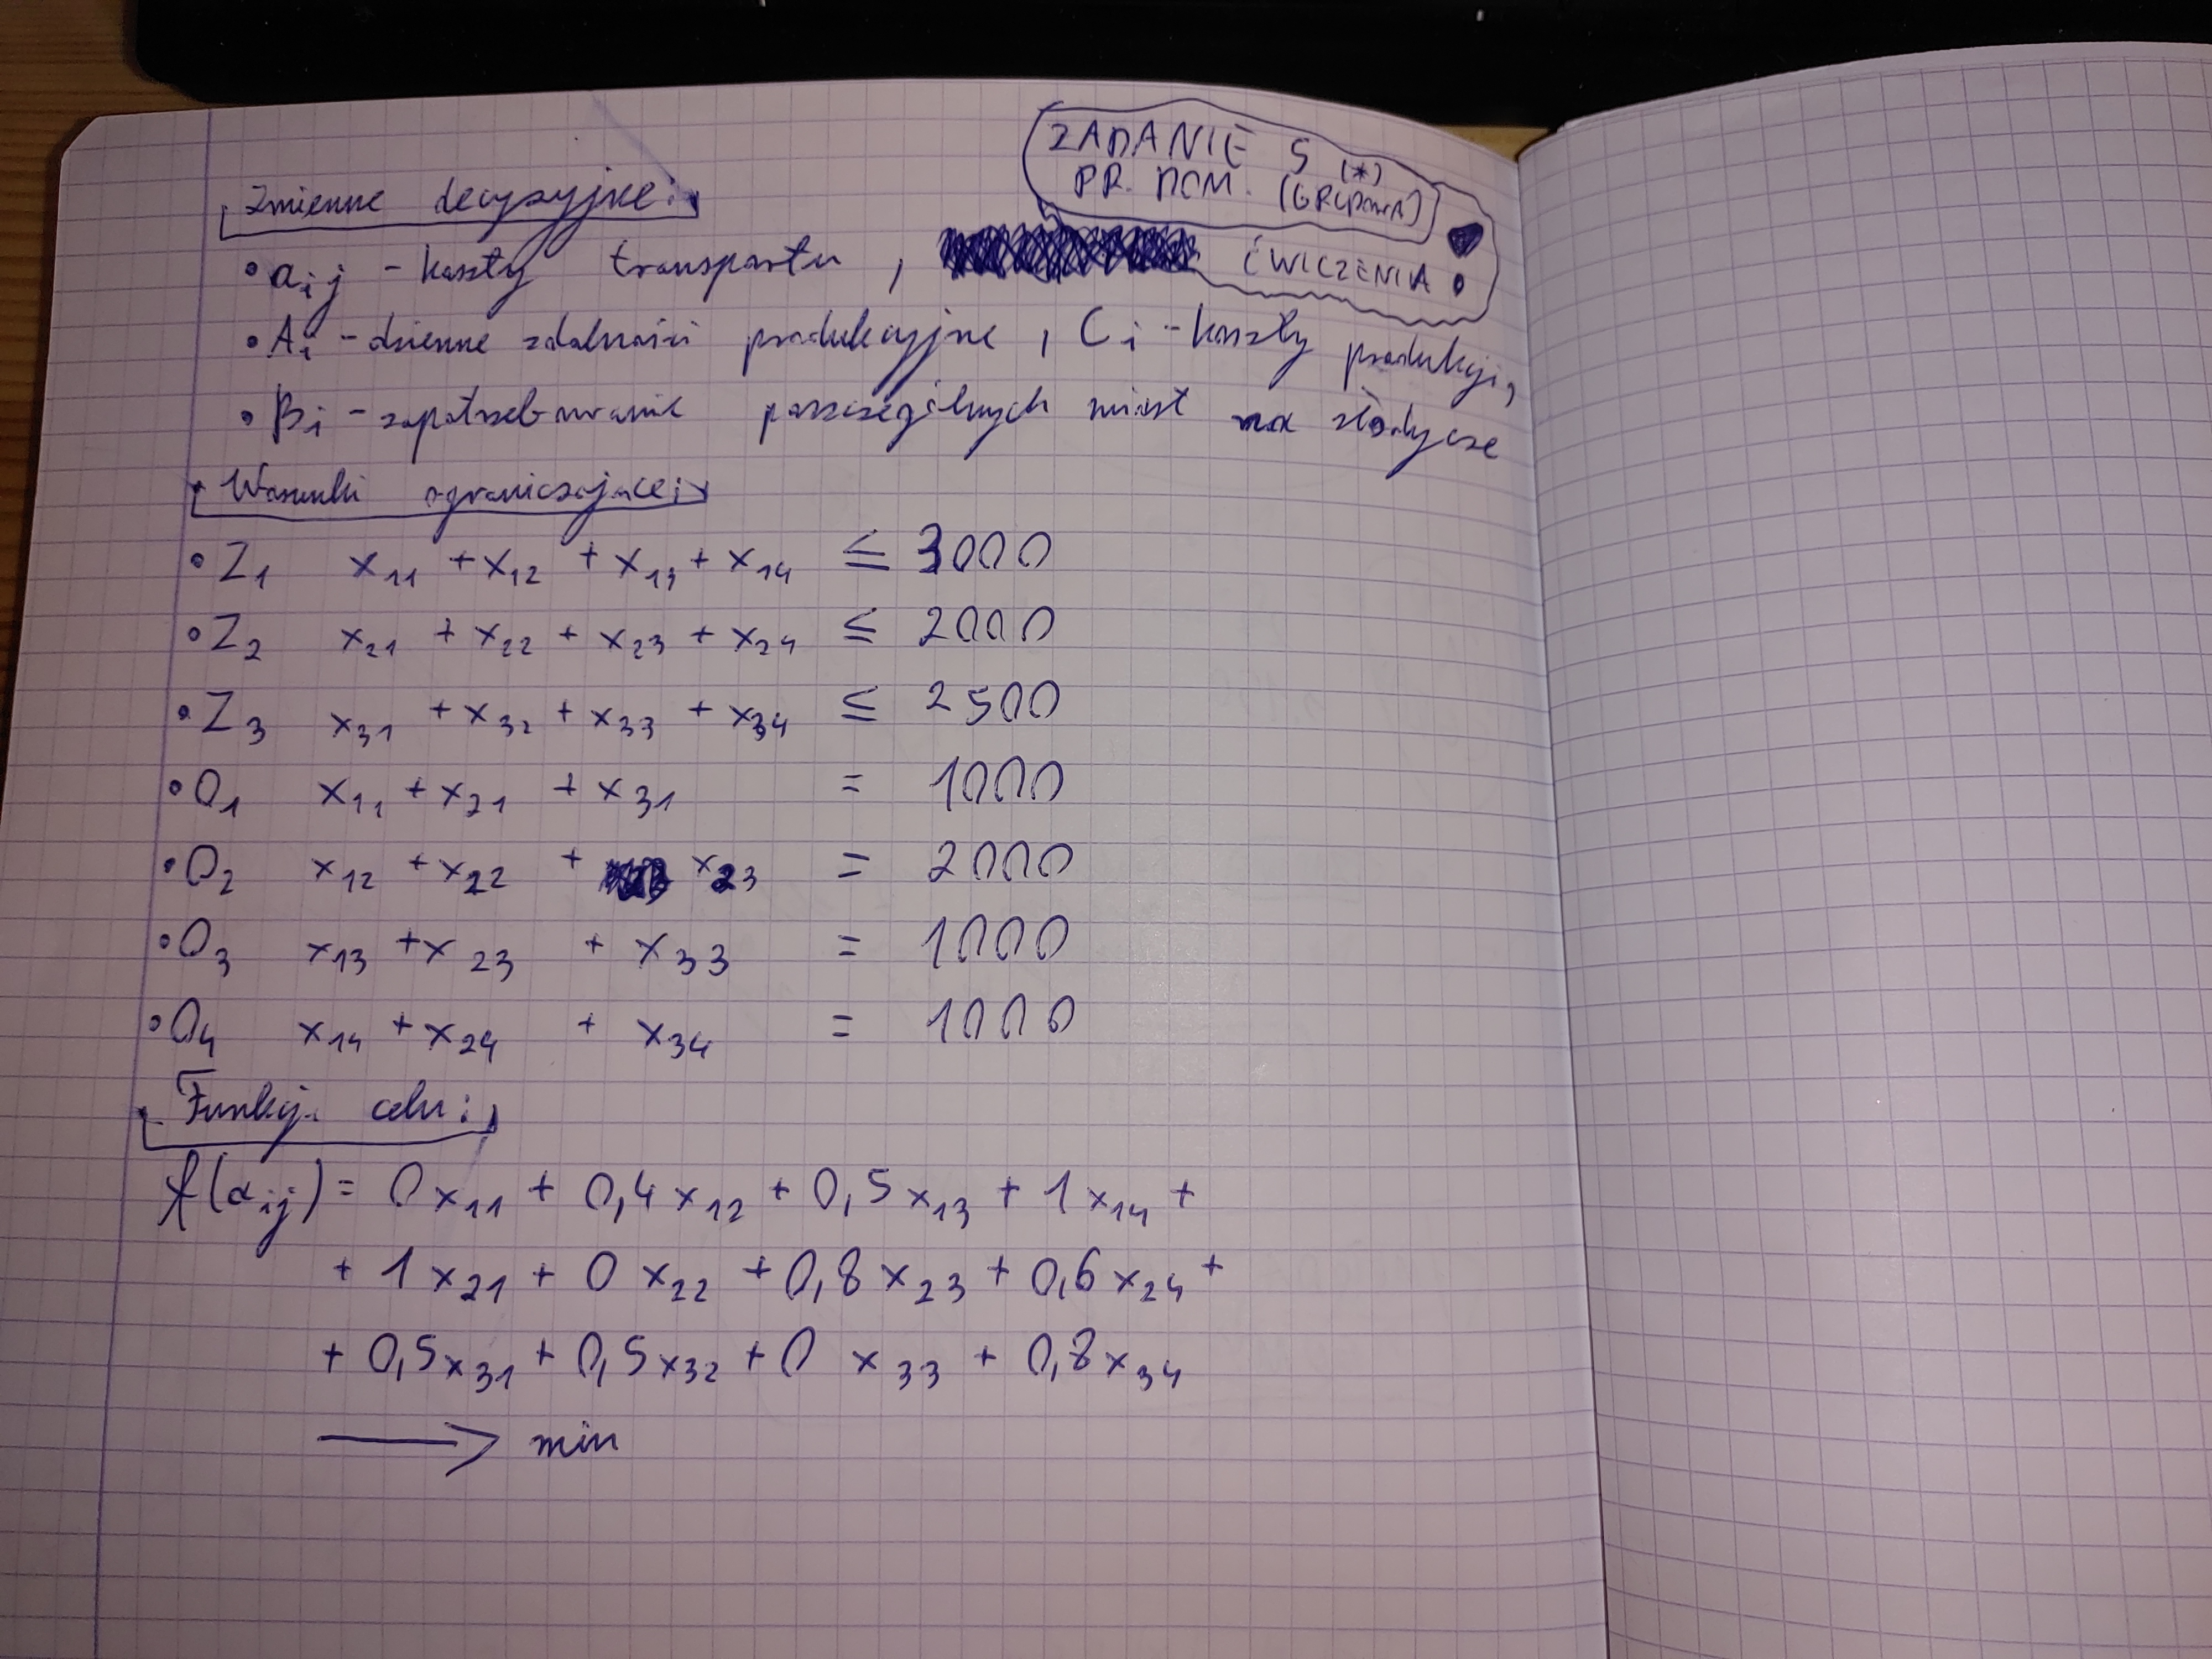 ZADANIE 5 (*)
PR. DOM. (GRUPOWA)
ĆWICZENIA
Zmienne decyzyjne:
• aij - koszty transportu,
• Ai - dzienne zdolności produkcyjne, Ci - koszty produkcji,
• Bi - zapotrzebowanie poszczególnych miast na słodycze
Warunki ograniczające:
• Z1 x11 + x12 + x13 + x14 ≤ 3000
• Z2 x21 + x22 + x23 + x24 ≤ 2000
• Z3 x31 + x32 + x33 + x34 ≤ 2500
• O1 x11 + x21 + x31 = 1000
• O2 x12 + x22 + x23 = 2000
• O3 x13 + x23 + x33 = 1000
• O4 x14 + x24 + x34 = 1000
Funkcja celu:
f(αij) = 0 x11 + 0,4 x12 + 0,5 x13 + 1 x14 +
+ 1 x21 + 0 x22 + 0,8 x23 + 0,6 x24 +
+ 0,5 x31 + 0,5 x32 + 0 x33 + 0,8 x34
⟶ min